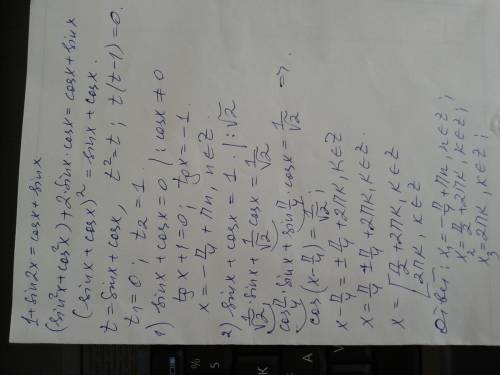 1+sin2x = cosx+sinx
(sin²x+cos²x)+2·sinx·cosx = cosx+sinx
(sinx+cosx)² = sinx+cosx.
t = sinx+cosx, t²=t; t(t-1)=0.
t₁=0; t₂=1.
1) sinx+cosx=0 |:cosx≠0
tgx+1=0; tgx=-1.
x = -π/4 + πn, n∈Z.
2) sinx+cosx=1. |:√2
1/√2 sinx + 1/√2 cosx = 1/√2
cos π/4 · sinx + sin π/4 · cosx = 1/√2 =>.
cos(x-π/4) = 1/√2;
x-π/4 = ±π/4+2πk, k∈Z
x = π/4 ± π/4 + 2πk, k∈Z.
x = [π/2+2πk, k∈Z
[2πk, k∈Z
Ответ: x₁=-π/4+πn, n∈Z;
x₂=π/2+2πk, k∈Z;
x₃=2πk, k∈Z;
%
5